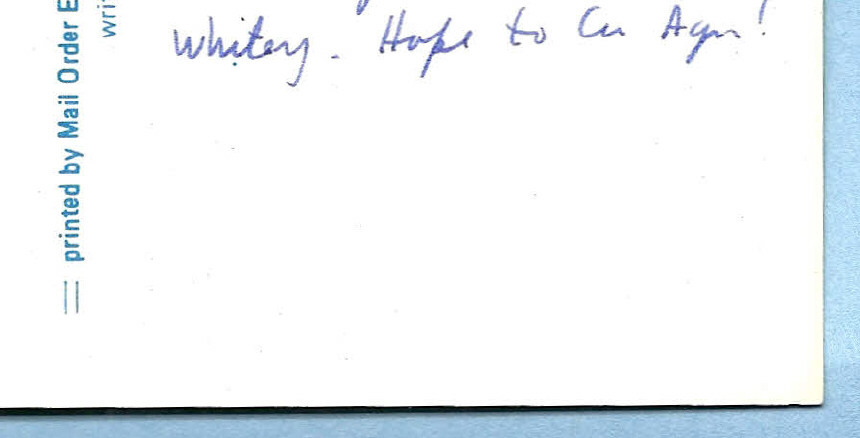 Whitey. Hope to Cu Agn!
printed by Mail Order E
wri